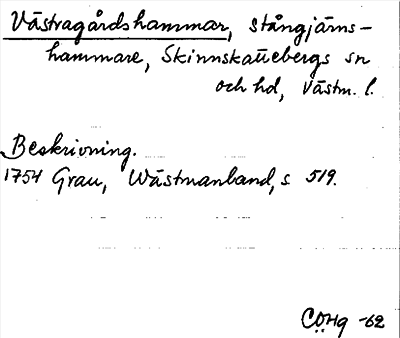 Västragårdshammar, stångjärns-
hammare, Skinnskattebergs sn
och hd, Västm. l.
Beskrivning.
1754 Grau, Wästmanland, s 519.
CÖHg -62